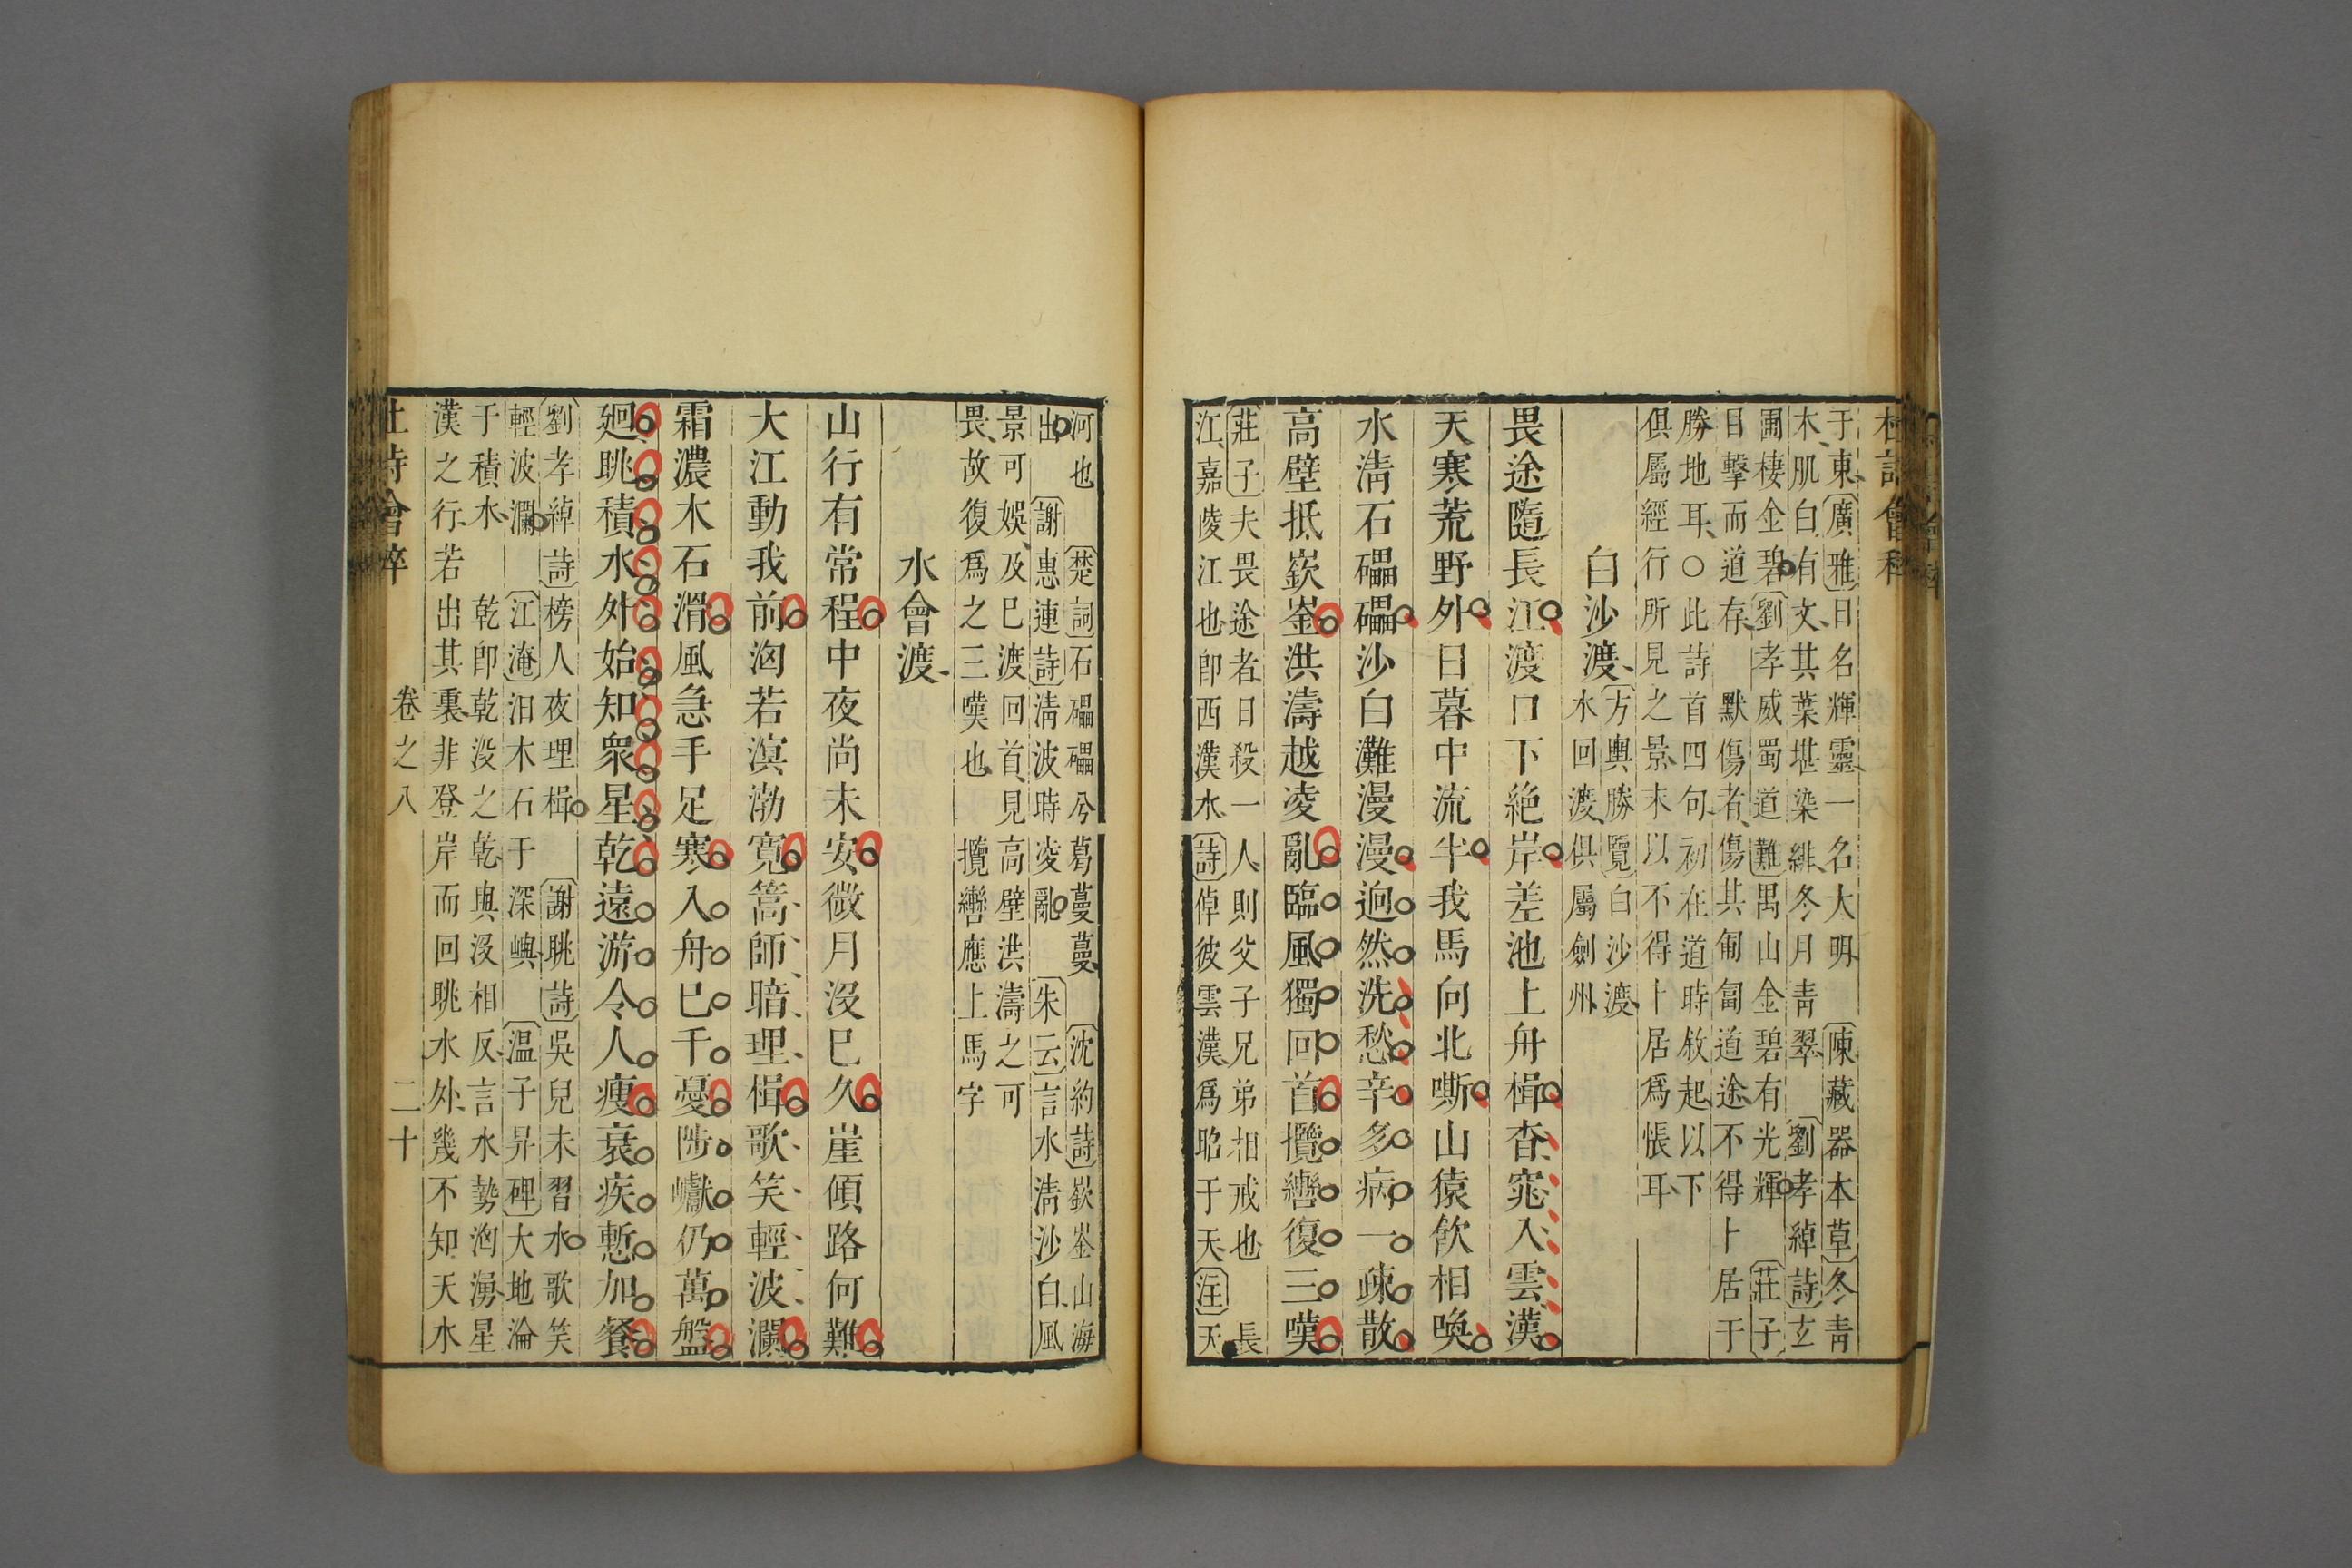 杜詩會稡
于東廣雅日名輝靈一名大明陳藏器本草冬靑
木肌白有文其葉堪染緋冬月靑翠劉孝綽詩玄
圃棲金碧劉孝威蜀道難禺山金碧有光輝莊子
目擊而道存默傷者傷其匍匐道途不得卜居于
勝地耳○此詩首四句初在道時敘起以下
俱屬經行所見之景末以不得卜居爲悵耳
白沙渡方輿勝覽白沙渡
水回渡俱屬劍州
畏途隨長江渡口下絶岸差池上舟楫杳窕入雲漢
天寒荒野外日暮中流半我馬向北嘶山猿飮相喚
水淸石礧礧沙白灘漫漫迥然洗愁辛多病一疎散
高壁抵嶔崟洪濤越凌亂臨風獨回首攬轡復三嘆
莊子夫畏途者日殺一人則父子兄弟相戒也長
江嘉陵江也卽西漢水詩倬彼雲漢爲昭于天注天
河也楚詞石礧礧兮葛蔓蔓沈約詩嶔崟山海
出謝惠連詩淸波時凌亂朱云言水淸沙白風
景可娛及已渡回首見高壁洪濤之可
畏故復爲之三嘆也攬轡應上馬字
水會渡
山行有常程中夜尚未安微月沒已久崖傾路何難
大江動我前洶若溟渤寬篙師暗理楫歌笑輕波瀾
霜濃木石滑風急手足寒入舟已千憂陟巘仍萬盤
迴眺積水外始知衆星乾遠游令人瘦衰疾慙加餐
劉孝綽詩榜人夜理楫謝眺詩吳兒未習水歌笑
輕波瀾江淹汨木石于深嶼温子昇碑大地淪
于積水乾卽乾沒之乾與沒相反言水勢洶湧星
漢之行若出其裏非登岸而回眺水外幾不知天水
杜詩會稡 卷之八 二十